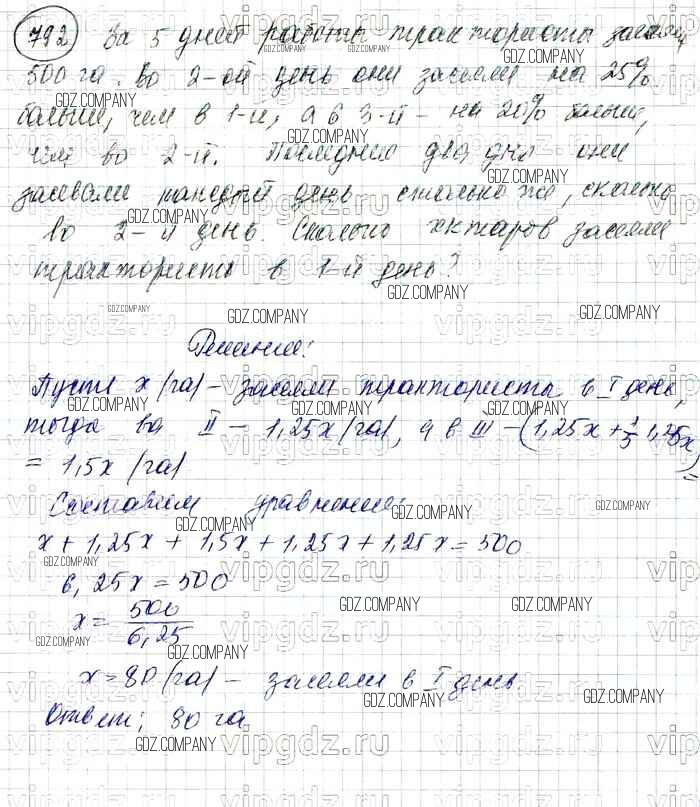 792 За 5 дней работы трактористы засеяли
500 га. Во 2-ой день они засеяли на 25%
больше, чем в 1-й, а в 3-й - на 20% больше,
чем во 2-й. Последние два дня они
засевали каждый день столько же, сколько
во 2-й день. Сколько гектаров засеяли
трактористы в 1-й день?
Решение:
Пусть x (га) - засеяли трактористы в I день,
тогда во II - 1,25x (га), а в III - (1,25x + 1/5 1,25x) =
= 1,5x (га)
Составим уравнение:
x + 1,25x + 1,5x + 1,25x + 1,25x = 500
6,25x = 500
x = 500/6,25
x = 80 (га) - засеяли в I день
Ответ: 80 га
GDZ.COMPANY
vipgdz.ru